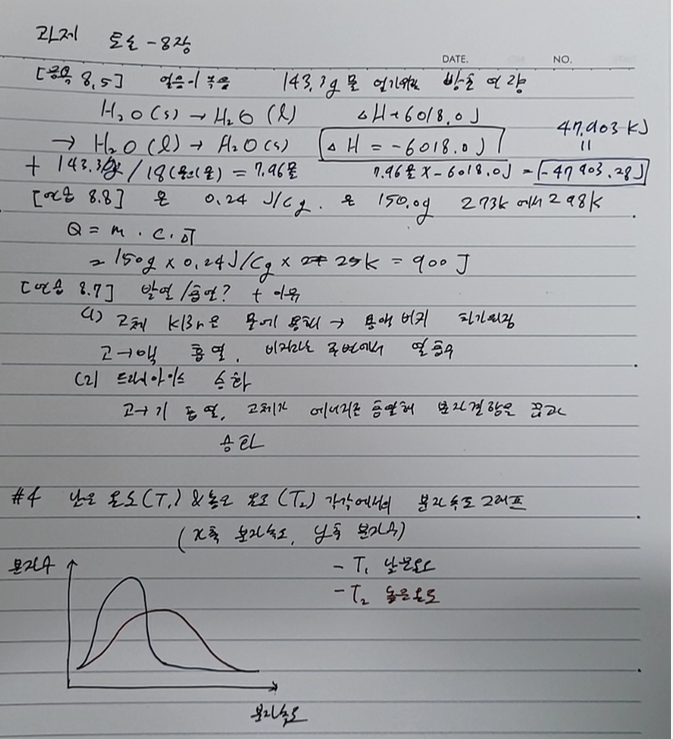 과제 토론 - 8장
DATE. NO.
[응용 8.5] 얼음이 녹음 143.3g 물 얼기위해 방출 열량
H₂O(s) → H₂O(l) ΔH + 6018.0J
47,903 kJ
→ H₂O(l) → H₂O(s) ΔH = -6018.0J
=
+ 143.3g / 18 = 7.96몰 7.96몰 x -6018.0J = -47903.28J
[연습 8.8] 은 0.24 J/Cg. 은 150.0g 273k 에서 298k
Q = m · c · ΔT
= 150g x 0.24J/Cg x 25k = 900 J
[연습 8.7] 발열/흡열? + 이유
(1) 고체 KBr은 물에 용해 → 용액 비커 차가워짐
고→액 흡열, 비커라는 주변에서 열흡수
(2) 드라이아이스 승화
고→기 흡열, 고체가 에너지를 흡열해 분자결합을 끊고
승화
#4 낮은 온도(T₁) & 높은 온도(T₂) 각각에서의 분자속도 그래프
(x축 분자속도, y축 분자수)
분자수
- T₁ 낮은온도
- T₂ 높은온도
분자속도